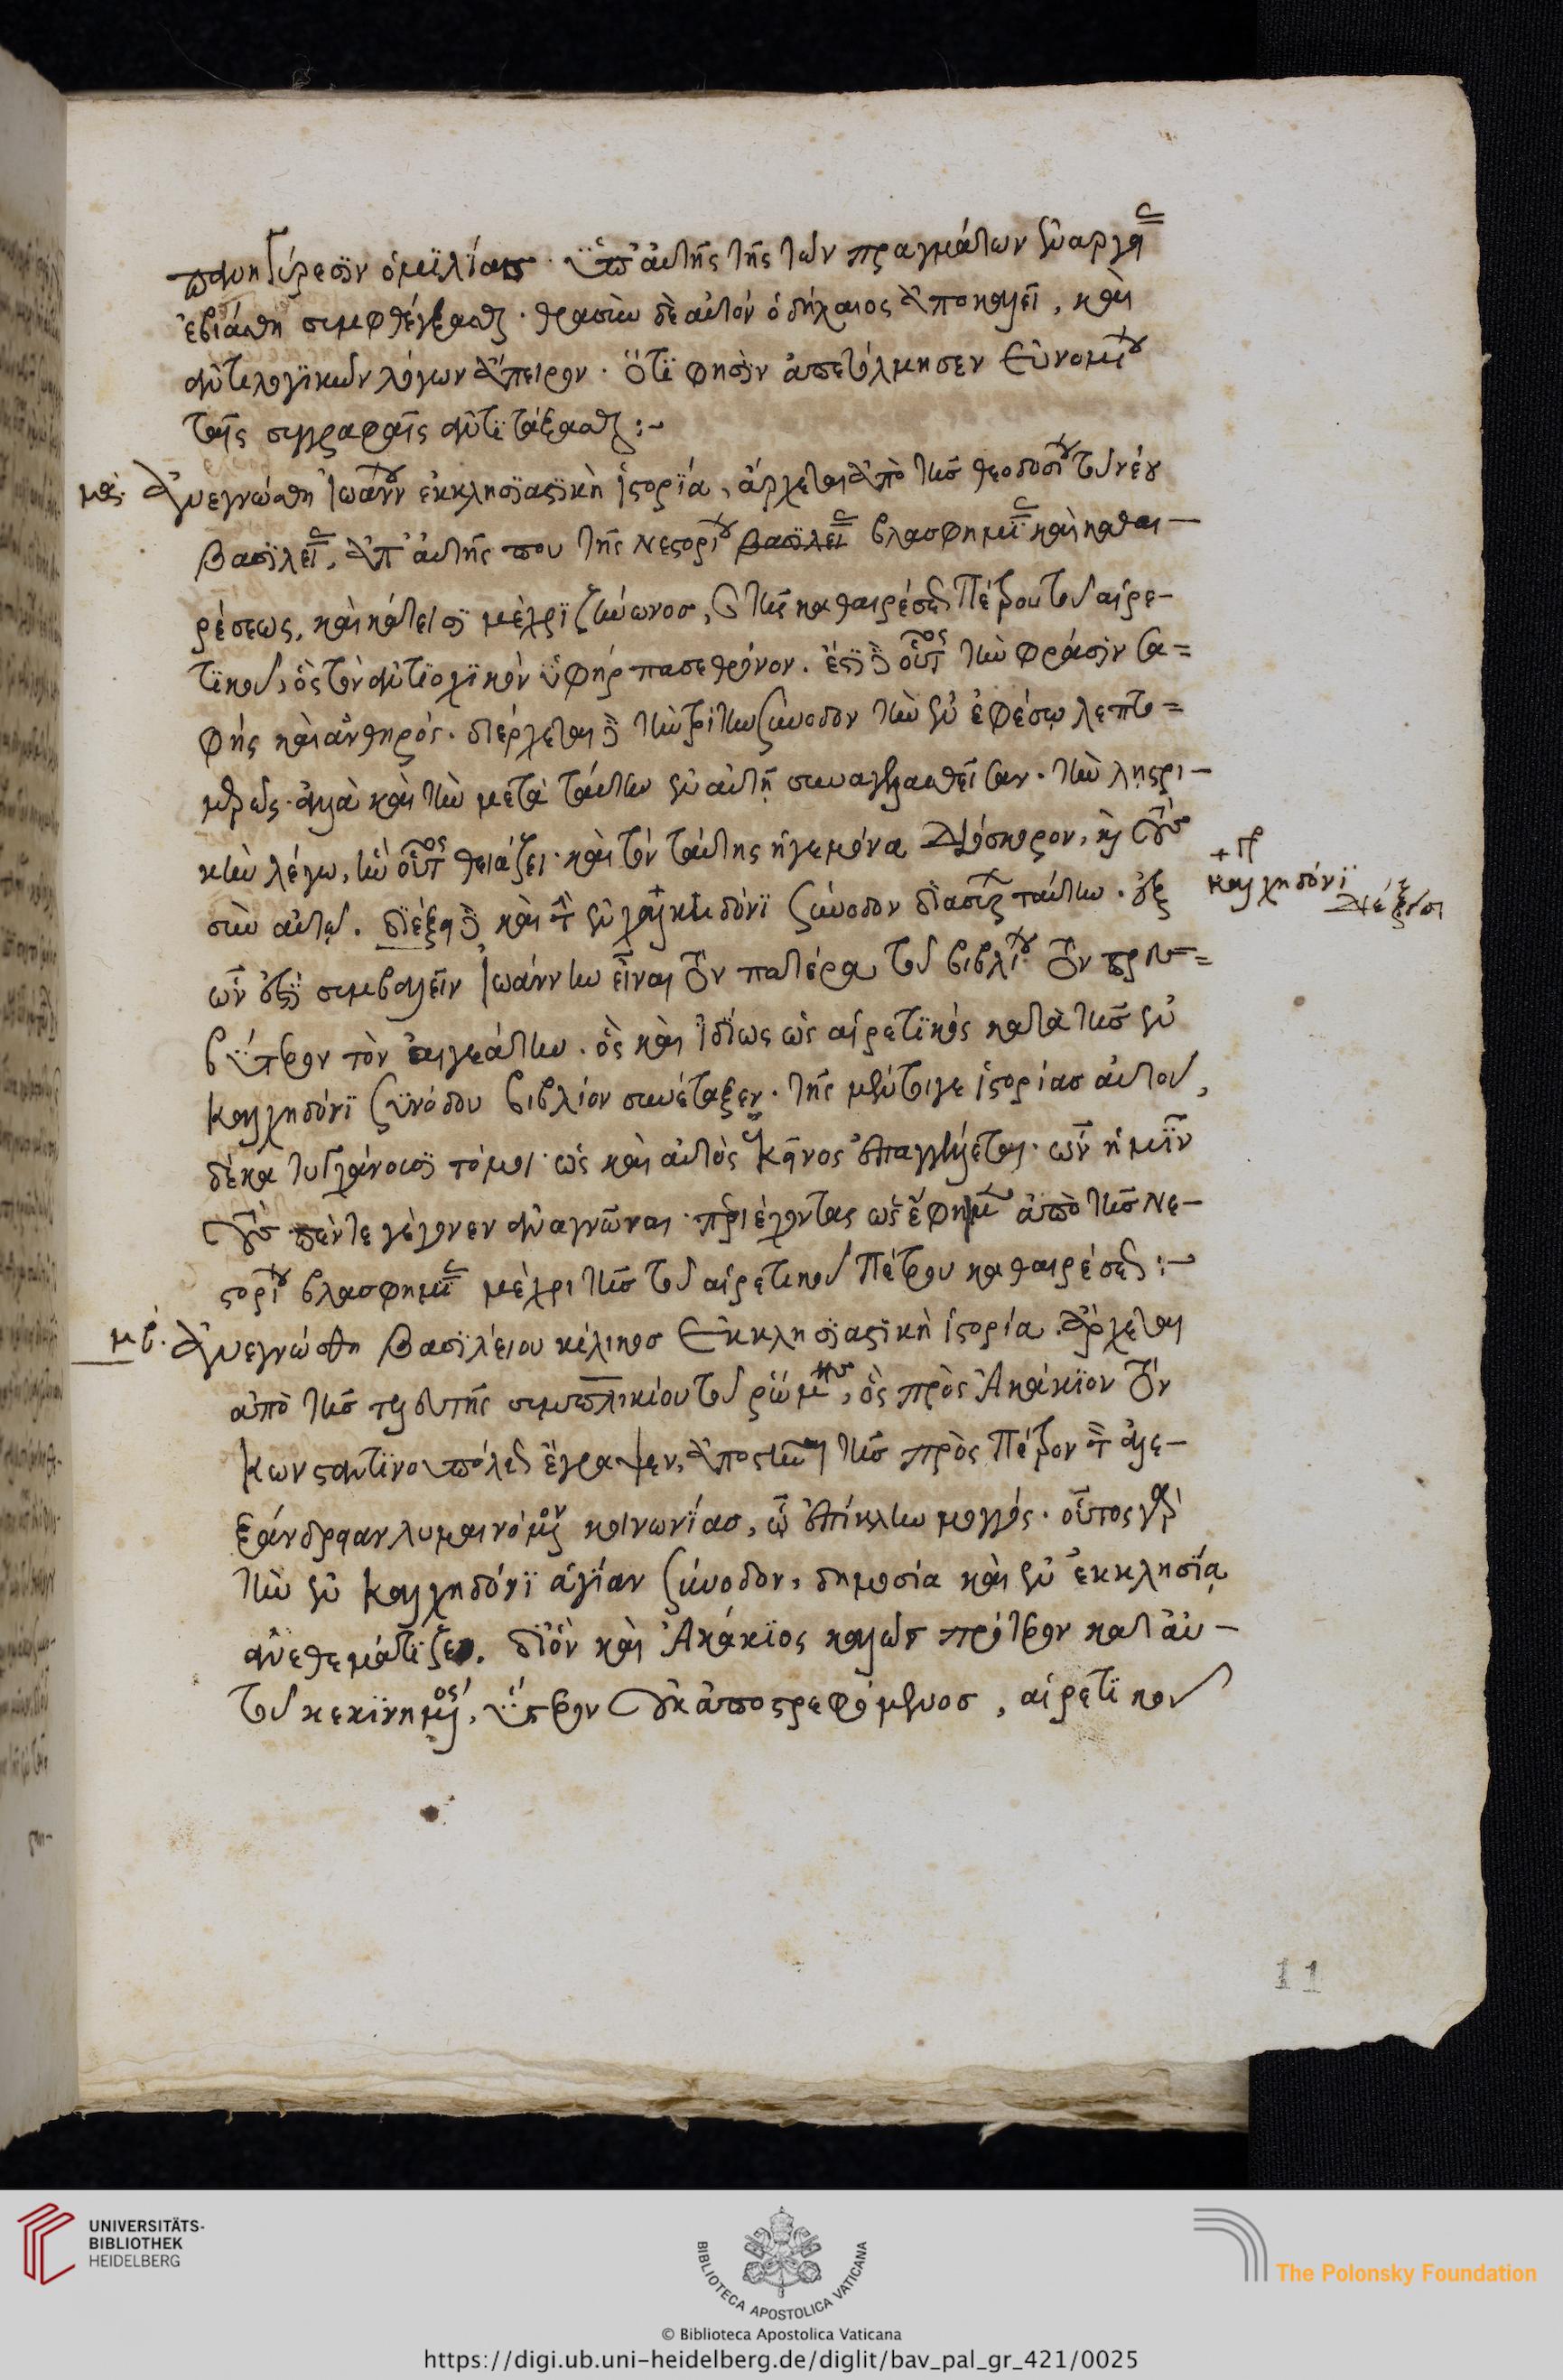 πανηγύρεσιν ὁμιλίας· ὑπ' αὐτῆς τῆς τῶν πραγμάτων ἐναργείας
ἐβιάσθη συμφθέγξασθαι· θρασὺν δὲ αὐτὸν ὁ δήκαιος ἀποκαλεῖ, καὶ
ἀντιλογικῶν λόγων ἄπειρον· ὅτι φησὶν ἀπετόλμησεν Εὐνομίου
ταῖς συγγραφαῖς ἀντιτάξασθαι:~
μα. Ἀνεγνώσθη Ἰωάννου ἐκκλησιαστικὴ ἱστορία, ἄρχεται ἀπὸ τῆς Θεοδοσίου τοῦ νέου
βασιλείας, ἀπ' αὐτῆς που τῆς Νεστορίου βασιλείας βλασφημίας καὶ καθαι-
ρέσεως, καὶ κάτεισι μέχρι ζήνωνος, καὶ τῆς καθαιρέσεως Πέτρου τοῦ αἱρε-
τικοῦ, ὃς τὸν ἀντιοχικὸν ὑφήρπασε θρόνον. ἔστι δὲ οὗτος τὴν φράσιν σα=
φὴς καὶ ἀνθηρός. διέρχεται δὲ τὴν τρίτην σύνοδον τὴν ἐν ἐφέσῳ λεπτο=
μερῶς· ἀλλὰ καὶ τὴν μετὰ ταύτην ἐν αὐτῇ συναγελασθεῖσαν. τὴν λῃστρι-
κὴν λέγω, ἣν οὗτος θειάζει· καὶ τὸν ταύτης ἡγεμόνα Διόσκορον, καὶ τοὺς
σὺν αὐτῷ. διέξεισι δὲ καὶ τὴν ἐν χαλκηδόνι σύνοδον διασύρων ταύτην. ἐξ
+ γρ
καλχηδόνι
διέξεισι
ὧν ἔστι συμβαλεῖν Ἰωάννην εἶναι τὸν πατέρα τοῦ βιβλίου τὸν πρεσ=
βύτερον τὸν αἰγεάτην. ὃς καὶ ἰδίως ὡς αἱρετικὸς κατὰ τῆς ἐν
καλχηδόνι συνόδου βιβλίον συνέταξεν. τῆς μέντοιγε ἱστορίας αὐτοῦ,
δέκα τυγχάνουσι τόμοι· ὡς καὶ αὐτὸς ἐκεῖνος ἐπαγγέλλεται· ὧν ἡμῖν
τοὺς πέντε γέγονεν ἀναγνῶναι· περιέχοντας ὡς ἔφημεν ἀπὸ τῆς Νε-
στορίου βλασφημίας μέχρι τῆς τοῦ αἱρετικοῦ Πέτρου καθαιρέσεως:~
μβ. Ἀνεγνώσθη βασιλείου κίλικος Ἐκκλησιαστικὴ ἱστορία. Ἄρχεται
ἀπὸ τῆς τελευτῆς συμπλικίου τοῦ ῥώμης, ὃς πρὸς Ἀκάκιον τὸν
Κωνσταντινουπόλεως ἔγραψεν, ἀποστῆναι τῆς πρὸς Πέτρον τὸν ἀλε-
ξάνδρειαν λυμαινόμενον κοινωνίας, ᾧ ἐπίκλην μογγός. οὗτος γὰρ
τὴν ἐν Καλχηδόνι ἁγίαν σύνοδον, δημοσία καὶ ἐν ἐκκλησίᾳ
ἀνεθεμάτιζεν. δι' ὃν καὶ Ἀκάκιος καλῶς πρότερον κατ' αὐ-
τοῦ κεκινημένος, ὕστερον οὐκ ἀποστρεφόμενος, αἱρετικοῦ
11
UNIVERSITÄTS-
BIBLIOTHEK
HEIDELBERG
BIBLIOTECA APOSTOLICA VATICANA
The Polonsky Foundation
© Biblioteca Apostolica Vaticana
https://digi.ub.uni-heidelberg.de/diglit/bav_pal_gr_421/0025